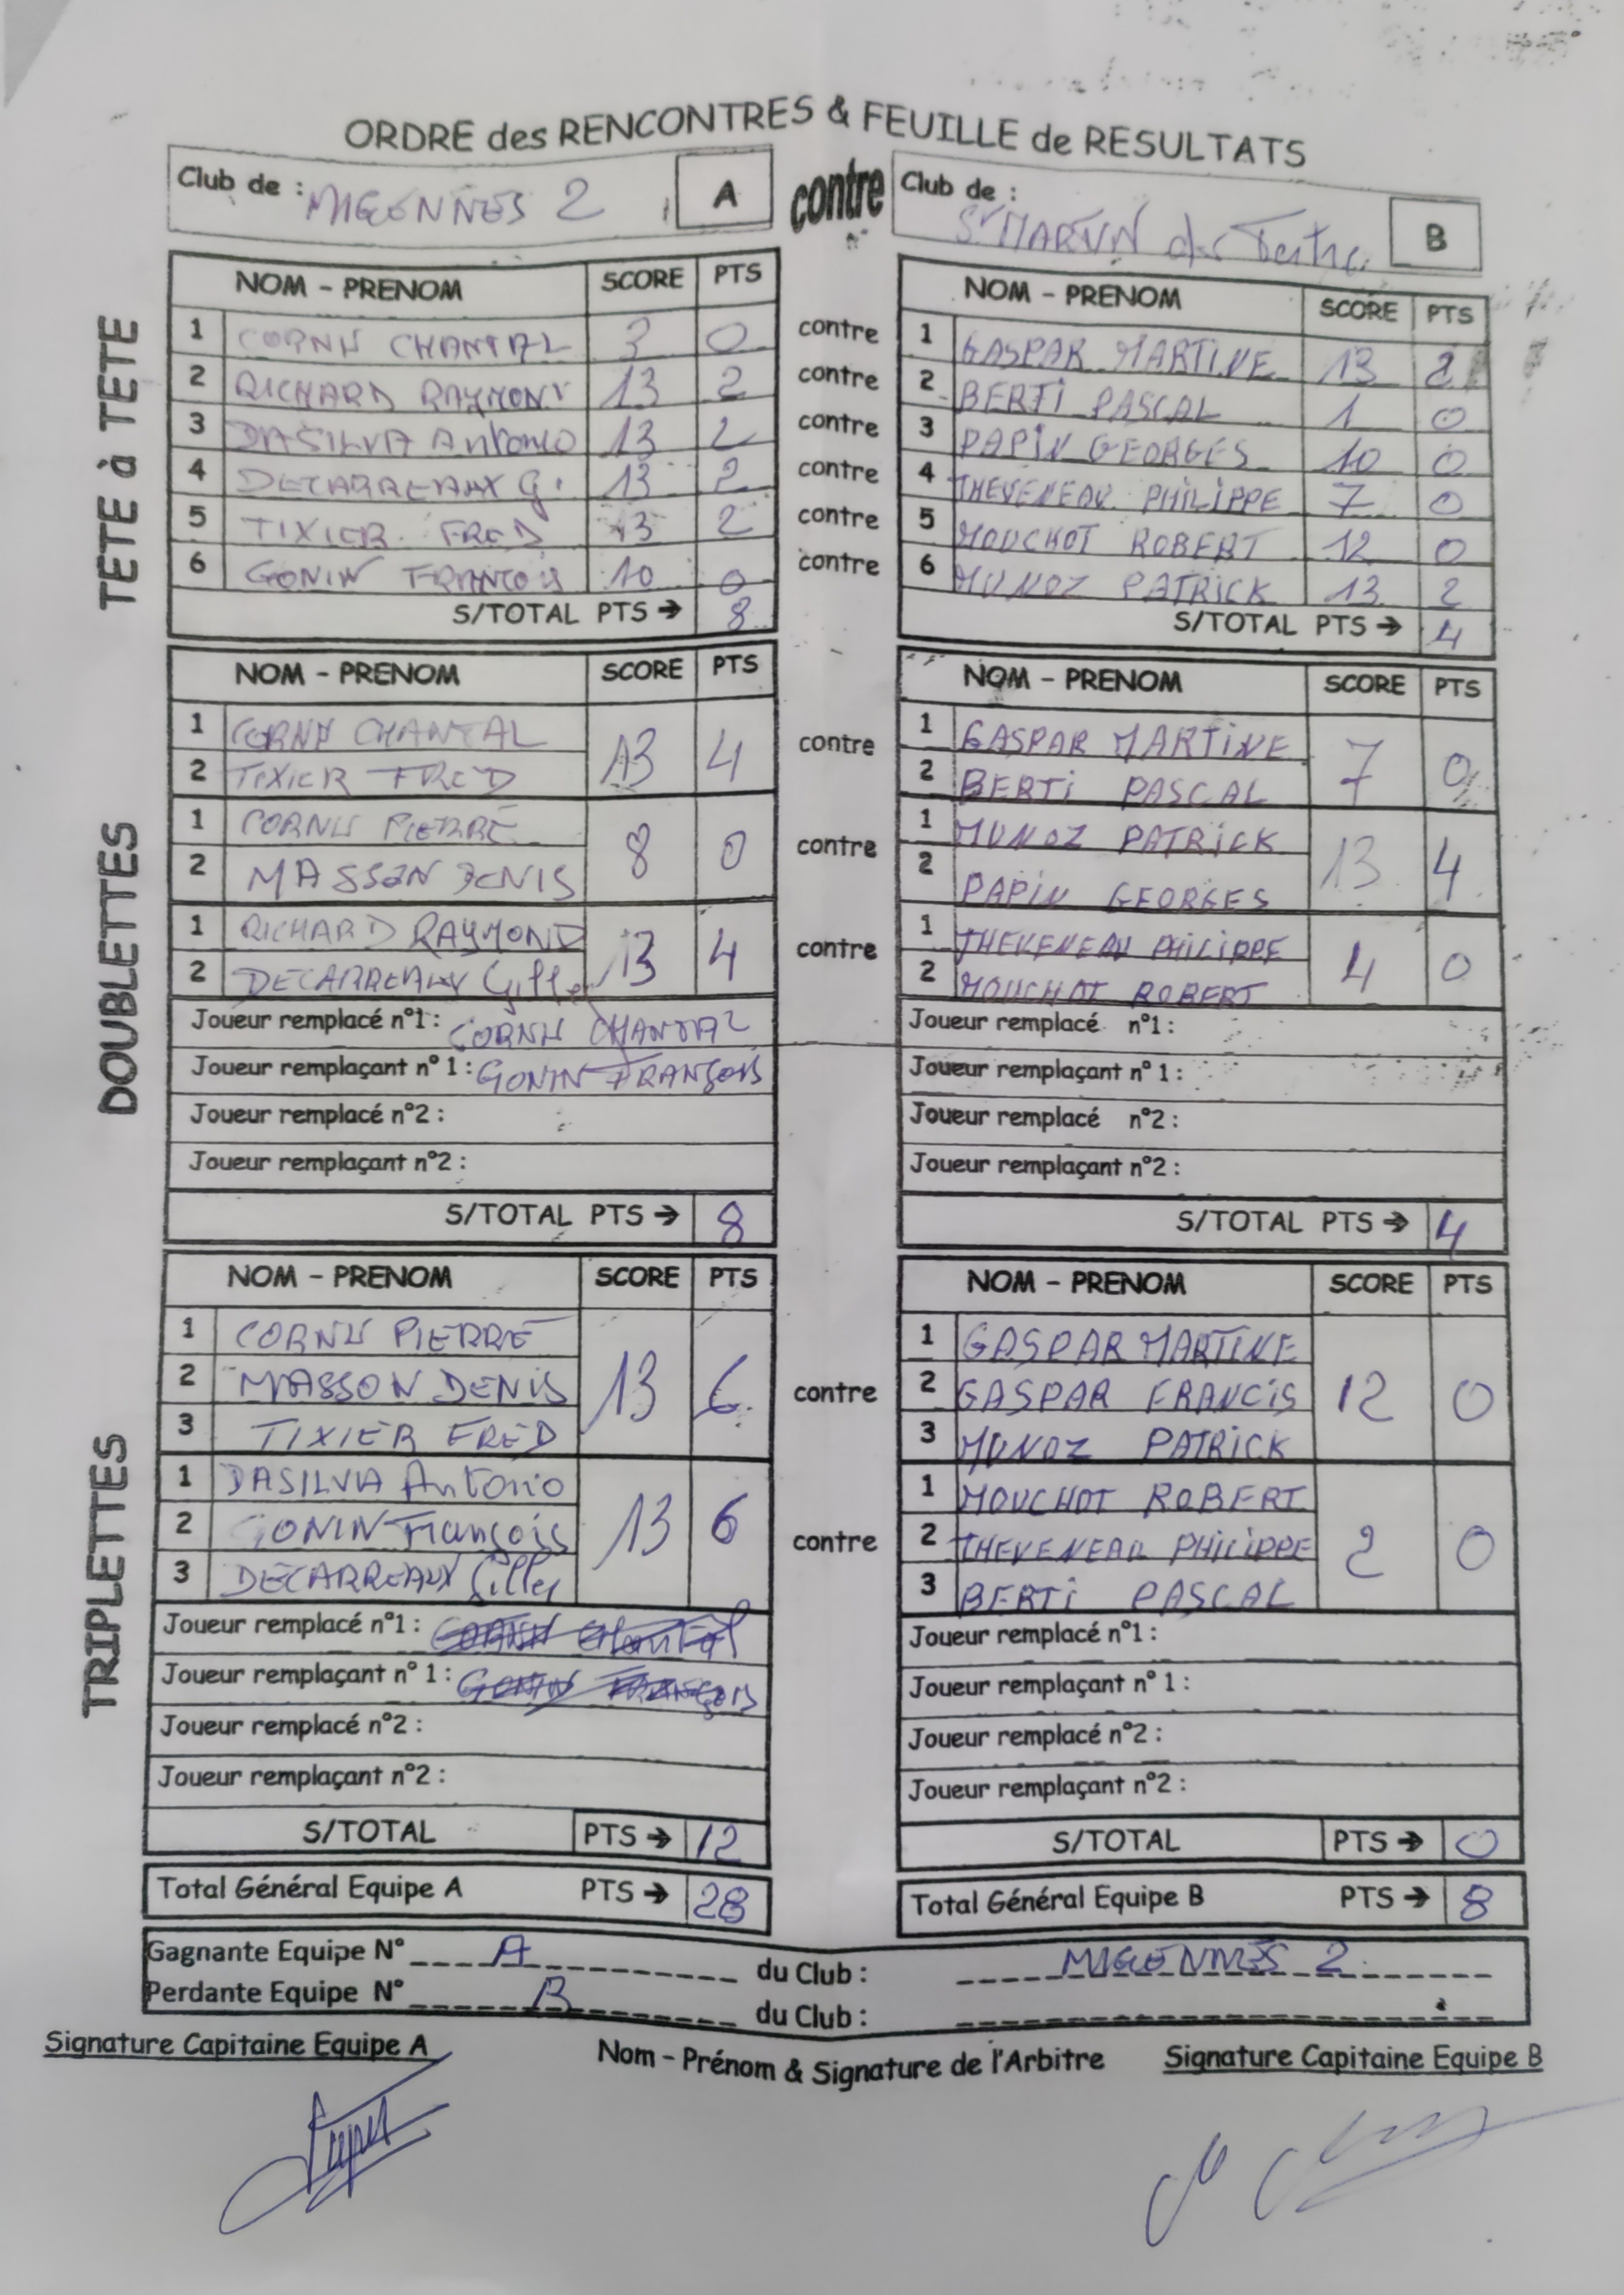 ORDRE des RENCONTRES & FEUILLE de RESULTATS
Club de : MIGENNES 2 A contre Club de : St MARTIN du Tertre B
TETE à TETE
NOM - PRENOM SCORE PTS NOM - PRENOM SCORE PTS
1 CORNU CHANTAL 3 0 contre 1 GASPAR MARTINE 13 2
2 RICHARD RAYMOND 13 2 contre 2 BERTI PASCAL 1 0
3 DASILVA Antonio 13 2 contre 3 PAPIN GEORGES 10 0
4 DECARREAUX G. 13 2 contre 4 THEVENEAU PHILIPPE 7 0
5 TIXIER FRED 13 2 contre 5 MOUCHOT ROBERT 12 0
6 GONIN FRANCOIS 10 0 contre 6 MUNOZ PATRICK 13 2
S/TOTAL PTS → 8 S/TOTAL PTS → 4
DOUBLETTES
NOM - PRENOM SCORE PTS NOM - PRENOM SCORE PTS
1 CORNU CHANTAL 13 4 contre 1 GASPAR MARTINE 7 0
2 TIXIER FRED 2 BERTI PASCAL
1 CORNU PIERRE 8 0 contre 1 MUNOZ PATRICK 13 4
2 MASSON DENIS 2 PAPIN GEORGES
1 RICHARD RAYMOND 13 4 contre 1 THEVENEAU PHILIPPE 4 0
2 DECARREAUX Gilles 2 MOUCHOT ROBERT
Joueur remplacé n°1 : CORNU CHANTAL Joueur remplacé n°1 :
Joueur remplaçant n° 1 : GONIN FRANÇOIS Joueur remplaçant n° 1 :
Joueur remplacé n°2 : Joueur remplacé n°2 :
Joueur remplaçant n°2 : Joueur remplaçant n°2 :
S/TOTAL PTS → 8 S/TOTAL PTS → 4
TRIPLETTES
NOM - PRENOM SCORE PTS NOM - PRENOM SCORE PTS
1 CORNU PIERRE 1 GASPAR MARTINE
2 MASSON DENIS 13 6 contre 2 GASPAR FRANCIS 12 0
3 TIXIER FRED 3 MUNOZ PATRICK
1 DASILVA Antonio 1 MOUCHOT ROBERT
2 GONIN François 13 6 contre 2 THEVENEAU PHILIPPE 2 0
3 DECARREAUX Gilles 3 BERTI PASCAL
Joueur remplacé n°1 : CORNU Chantal Joueur remplacé n°1 :
Joueur remplaçant n° 1 : GONIN FRANÇOIS Joueur remplaçant n° 1 :
Joueur remplacé n°2 : Joueur remplacé n°2 :
Joueur remplaçant n°2 : Joueur remplaçant n°2 :
S/TOTAL PTS → 12 S/TOTAL PTS → 0
Total Général Equipe A PTS → 28 Total Général Equipe B PTS → 8
Gagnante Equipe N° A du Club : MIGENNES 2
Perdante Equipe N° B du Club :
Signature Capitaine Equipe A Nom - Prénom & Signature de l'Arbitre Signature Capitaine Equipe B